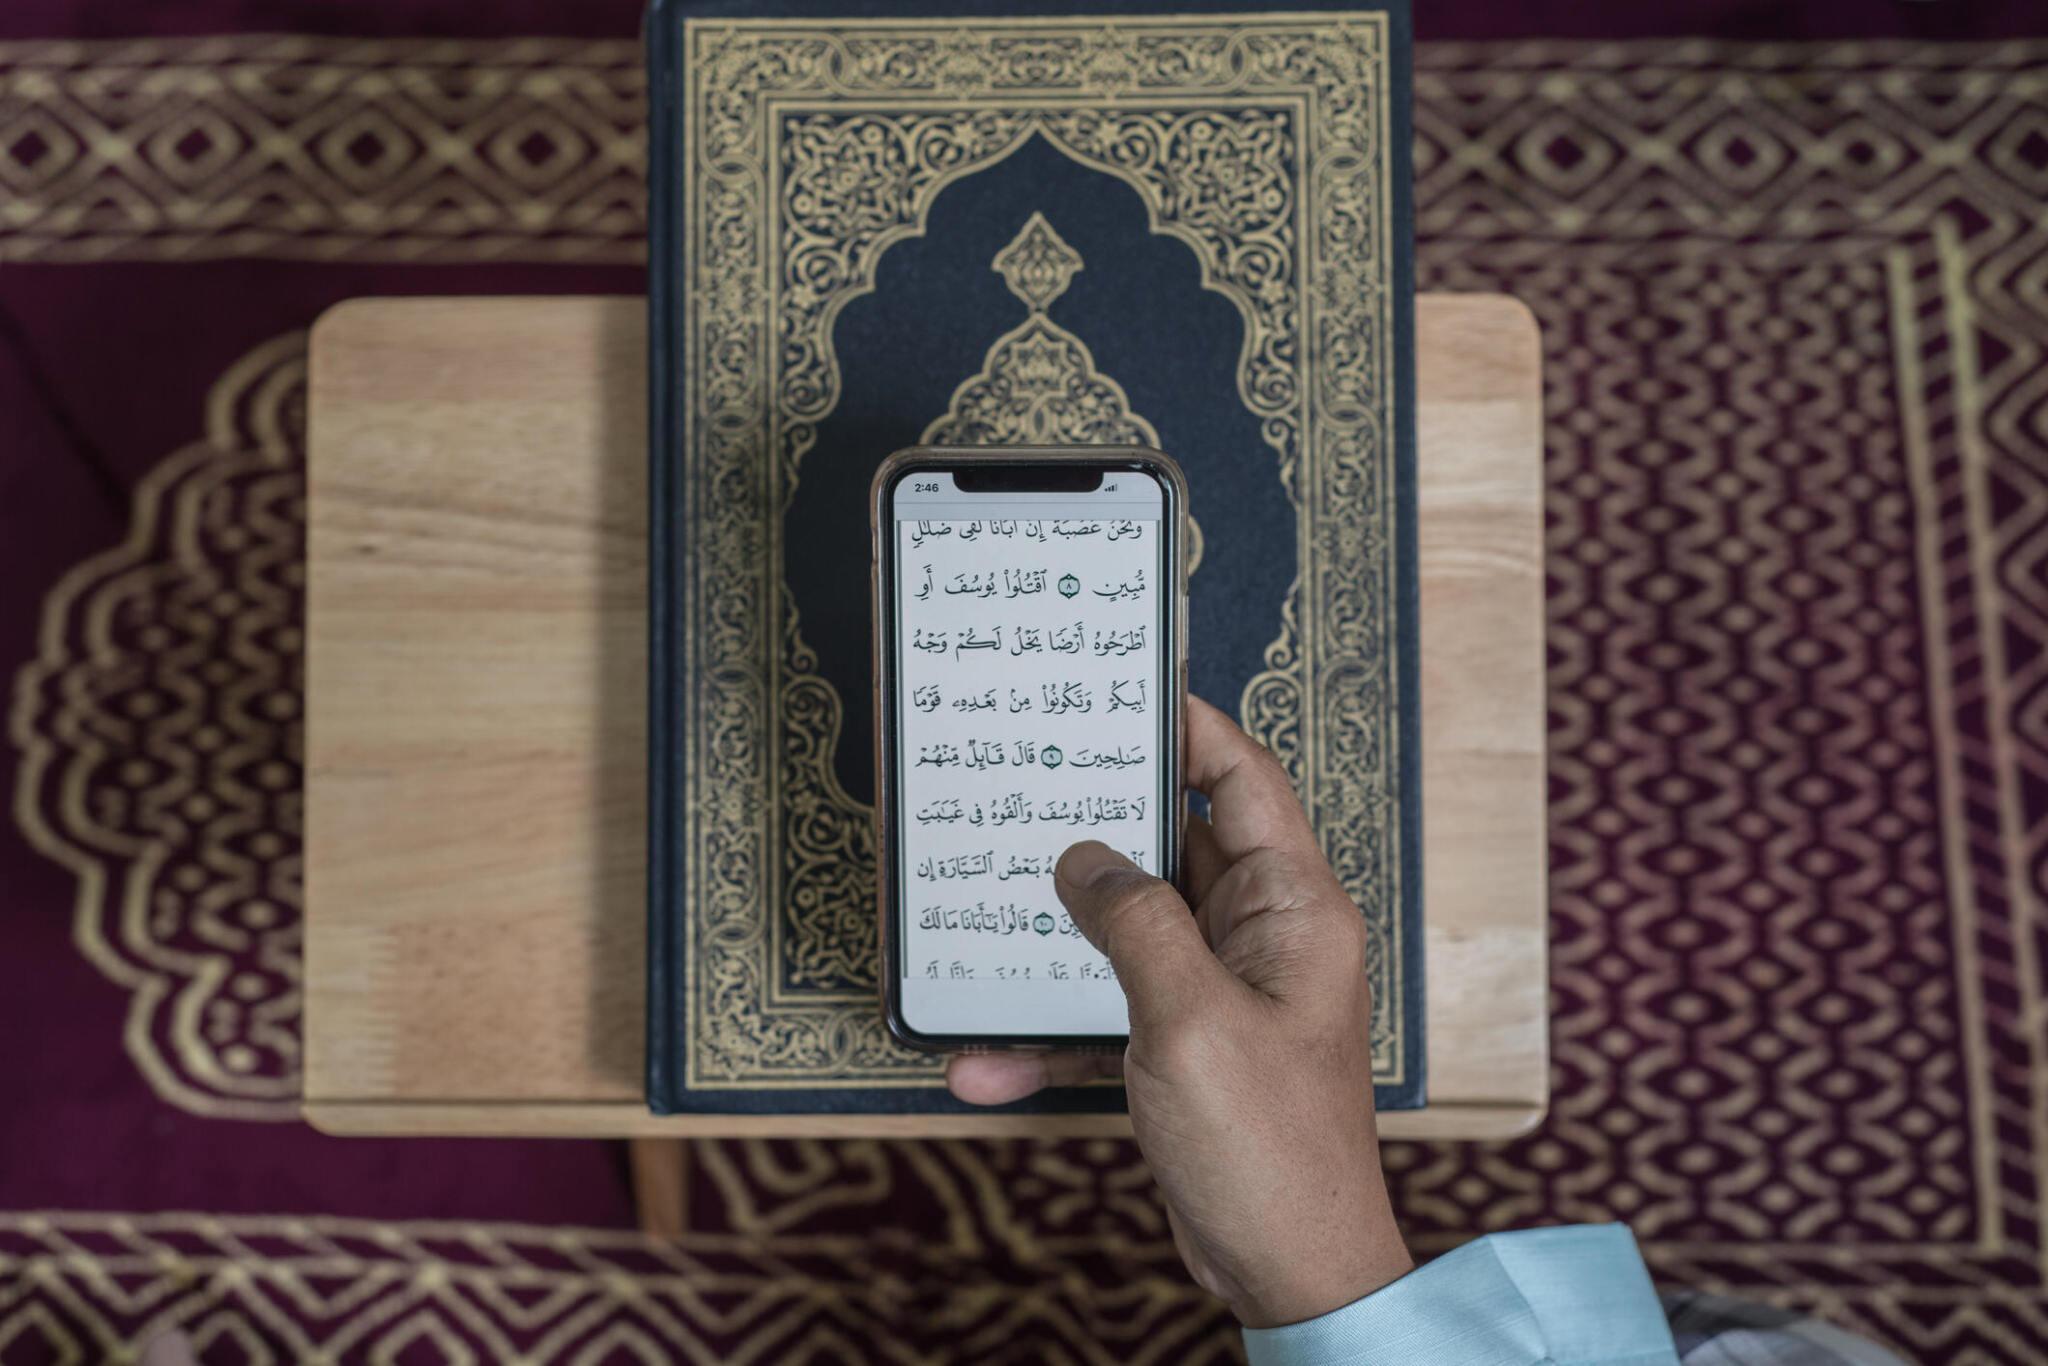 2:46
وَنَحْنُ عُصْبَةٌ إِنَّ أَبَانَا لَفِى ضَلَـٰلٍ
مُّبِينٍ ٨ ٱقْتُلُوا۟ يُوسُفَ أَوِ
ٱطْرَحُوهُ أَرْضًا يَخْلُ لَكُمْ وَجْهُ
أَبِيكُمْ وَتَكُونُوا۟ مِنۢ بَعْدِهِۦ قَوْمًا
صَـٰلِحِينَ ٩ قَالَ قَآئِلٌ مِّنْهُمْ
لَا تَقْتُلُوا۟ يُوسُفَ وَأَلْقُوهُ فِى غَيَـٰبَتِ
بَعْضُ ٱلسَّيَّارَةِ إِن
١٠ قَالُوا۟ يَـٰٓأَبَانَا مَا لَكَ